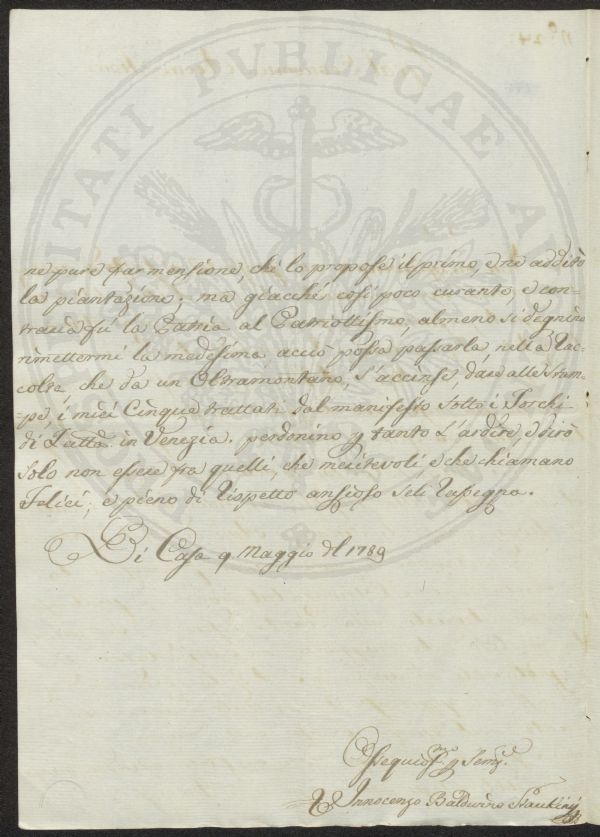 UTILITATI PUBLICAE
ne pure far menzione, che lo propose il primo, e ne additò
la piantazione; ma giacché così poco curante, e con-
traria fù la Patria al Patriottismo, almeno si degnino
rimettermi la medesima acciò possa passarla nella Rac-
colta, che da un Oltramontano, s'accinse, dare alle Stam-
pe, i miei Cinque trattati dal manifesto sotto i Torchi
di in Venezia. perdonino p tanto L'ardire, e dirò
solo non essere fra quelli, che meritevoli, e che chiamano
Felici; e pieno di Rispetto ansioso Seli Rasegna.
Di Casa 9 Maggio del 1789
Ossequios.mo
Innocenzo Balduino